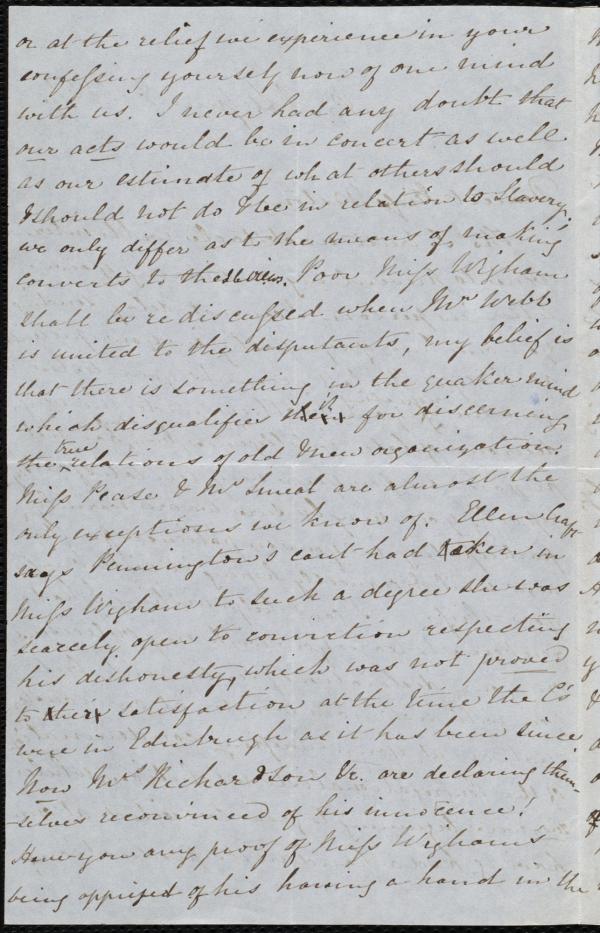 or at the relief we experience in your
confessing yourself now of one mind
with us. I never had any doubt that
our acts would be in concert as well
as our estimate of what others should
& should not do & be in relation to Slavery,
we only differ as to the means of making
converts to these views. Poor Miss Wigham
shall be rediscussed when Mr Webb
is united to the disputants, my belief is
that there is something in the quaker mind
which disqualifies it for discerning
the true relations of old & new organization.
Miss Pease & Mr Smeal are almost the
only exceptions we know of. Ellen Craft
says Pennington's cant had taken in
Miss Wigham to such a degree she was
scarcely open to conviction respecting
his dishonesty, which was not proved
to their satisfaction at the time the C's
were in Edinburgh as it has been since
Now Mrs Richardson &c. are declaring them-
selves reconvinced of his innocence!
Have you any proof of Miss Wigham's
being apprised of his having a hand in the